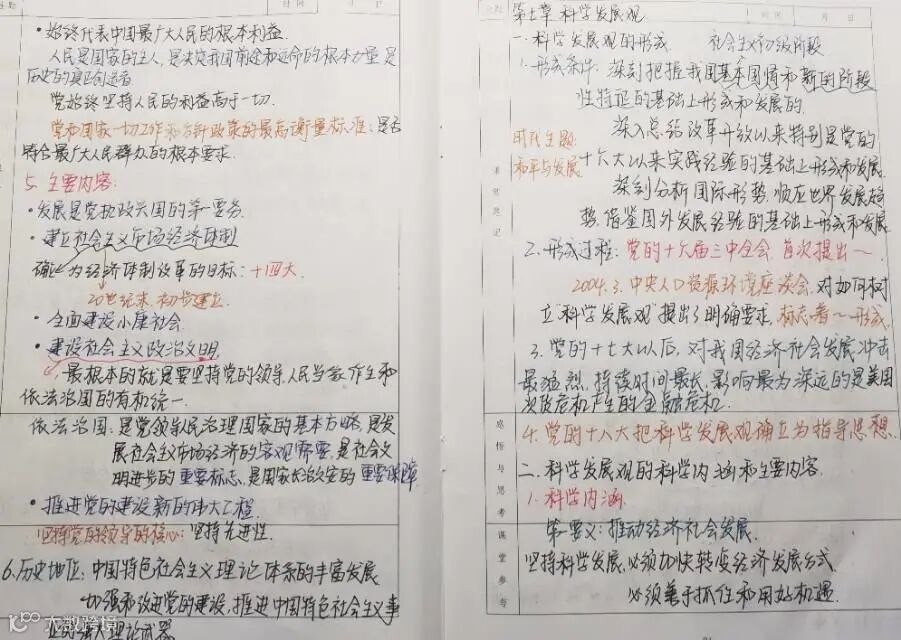 ·始终代表中国最广大人民的根本利益
人民是国家的主人,是决定我国前途和命运的根本力量,是
历史的真正创造者
党始终坚持人民的利益高于一切.
党和国家一切工作和方针政策的最高衡量标准:是否
符合最广大人民群众的根本要求.
5. 主要内容:
·发展是党执政兴国的第一要务.
·建立社会主义市场经济体制
确立为经济体制改革的目标:十四大.
20世纪末,初步建立.
·全面建设小康社会.
·建设社会主义政治文明.
最根本的就是要坚持党的领导、人民当家作主和
依法治国的有机统一.
依法治国:是党领导人民治理国家的基本方略,是发
展社会主义市场经济的客观需要,是社会文
明进步的重要标志,是国家长治久安的重要保障
·推进党的建设新的伟大工程
坚持党的领导的核心:坚持先进性.
6.历史地位:中国特色社会主义理论体系的丰富发展
加强和改进党的建设,推进中国特色社会主义事
业的强大理论武器
第七章 科学发展观
时间 月 日
一.科学发展观的形成. 社会主义初级阶段
1.形成条件:深刻把握我国基本国情和新的阶段
性特征的基础上形成和发展的.
深入总结改革开放以来特别是党的
时代主题: 十六大以来实践经验的基础上形成和发展.
和平与发展
深刻分析国际形势、顺应世界发展趋
势、借鉴国外发展经验的基础上形成和发展
课堂笔记
2.形成过程:党的十六届三中全会,首次提出~
2004.3.中央人口资源环境座谈会.对如何树
立科学发展观提出了明确要求,标志着~形成.
3.党的十七大以后,对我国经济社会发展冲击
最猛烈、持续时间最长、影响最为深远的是美国
次贷危机产生的金融危机.
4.党的十八大把科学发展观确立为指导思想.
二.科学发展观的科学内涵和主要内容.
1.科学内涵.
第一要义:推动经济社会发展.
坚持科学发展,必须加快转变经济发展方式
必须善于抓住和用好机遇.
感悟与思考
课堂参与
大数跨境